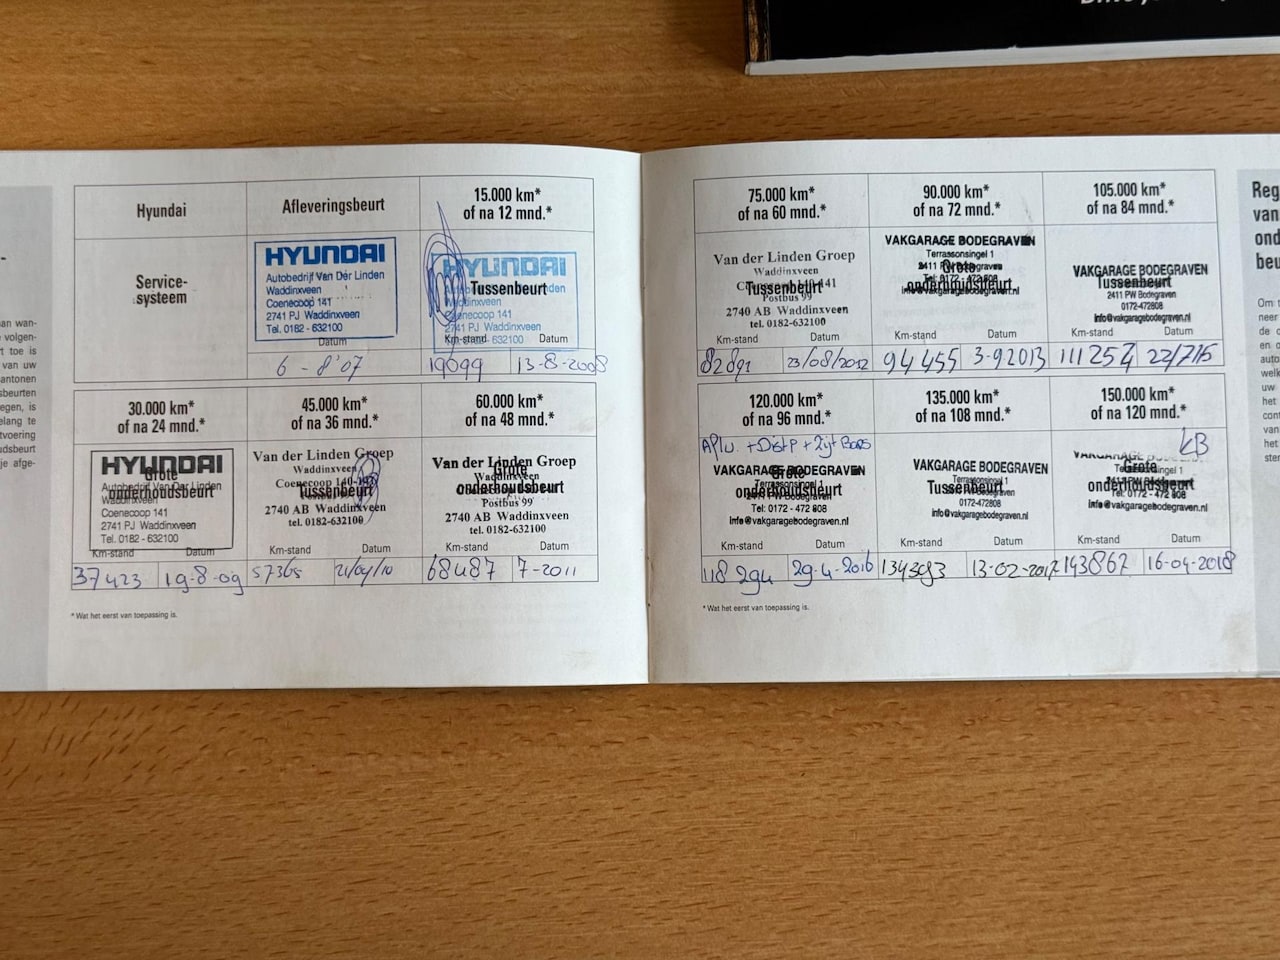 Hyundai
Afleveringsbeurt
15.000 km*
of na 12 mnd.*
Service-
systeem
HYUNDAI
Autobedrijf Van Der Linden
Waddinxveen
Coenecoop 141
2741 PJ Waddinxveen
Tel. 0182 - 632100
Datum
6 - 8 '07
HYUNDAI
Tussenbeurt
Waddinxveen
Coenecoop 141
2741 PJ Waddinxveen
Tel. 0182 - 632100
Km-stand
Datum
19099
13-8-2008
30.000 km*
of na 24 mnd.*
45.000 km*
of na 36 mnd.*
60.000 km*
of na 48 mnd.*
HYUNDAI
Grote
onderhoudsbeurt
Autobedrijf Van Der Linden
Waddinxveen
Coenecoop 141
2741 PJ Waddinxveen
Tel. 0182 - 632100
Km-stand
Datum
37423
19-8-09
Van der Linden Groep
Waddinxveen
Tussenbeurt
2740 AB Waddinxveen
tel. 0182-632100
Km-stand
Datum
57365
21/04/10
Van der Linden Groep
Grote
onderhoudsbeurt
Postbus 99
2740 AB Waddinxveen
tel. 0182-632100
Km-stand
Datum
68487
7-2011
* Wat het eerst van toepassing is.
75.000 km*
of na 60 mnd.*
90.000 km*
of na 72 mnd.*
105.000 km*
of na 84 mnd.*
Van der Linden Groep
Waddinxveen
Tussenbeurt
Postbus 99
2740 AB Waddinxveen
tel. 0182-632100
Km-stand
Datum
82891
23/08/2012
VAKGARAGE BODEGRAVEN
Terrassonsingel 1
2411 PW Bodegraven
Grote
Tel: 0172 - 472 808
onderhoudsbeurt
info@vakgaragebodegraven.nl
Km-stand
Datum
94455
3-9 2013
VAKGARAGE BODEGRAVEN
Tussenbeurt
2411 PW Bodegraven
0172-472808
info@vakgaragebodegraven.nl
Km-stand
Datum
111254
22/7/15
120.000 km*
of na 96 mnd.*
135.000 km*
of na 108 mnd.*
150.000 km*
of na 120 mnd.*
+ Distr +
VAKGARAGE BODEGRAVEN
Grote
onderhoudsbeurt
Tel: 0172 - 472 808
info@vakgaragebodegraven.nl
Km-stand
Datum
118294
29-4-2016
VAKGARAGE BODEGRAVEN
Terrassonsingel 1
Tussenbeurt
0172-472808
info@vakgaragebodegraven.nl
Km-stand
Datum
13-02-2017
KB
Grote
onderhoudsbeurt
Tel: 0172 - 472 808
info@vakgaragebodegraven.nl
Km-stand
Datum
143867
16-04-2018
* Wat het eerst van toepassing is.